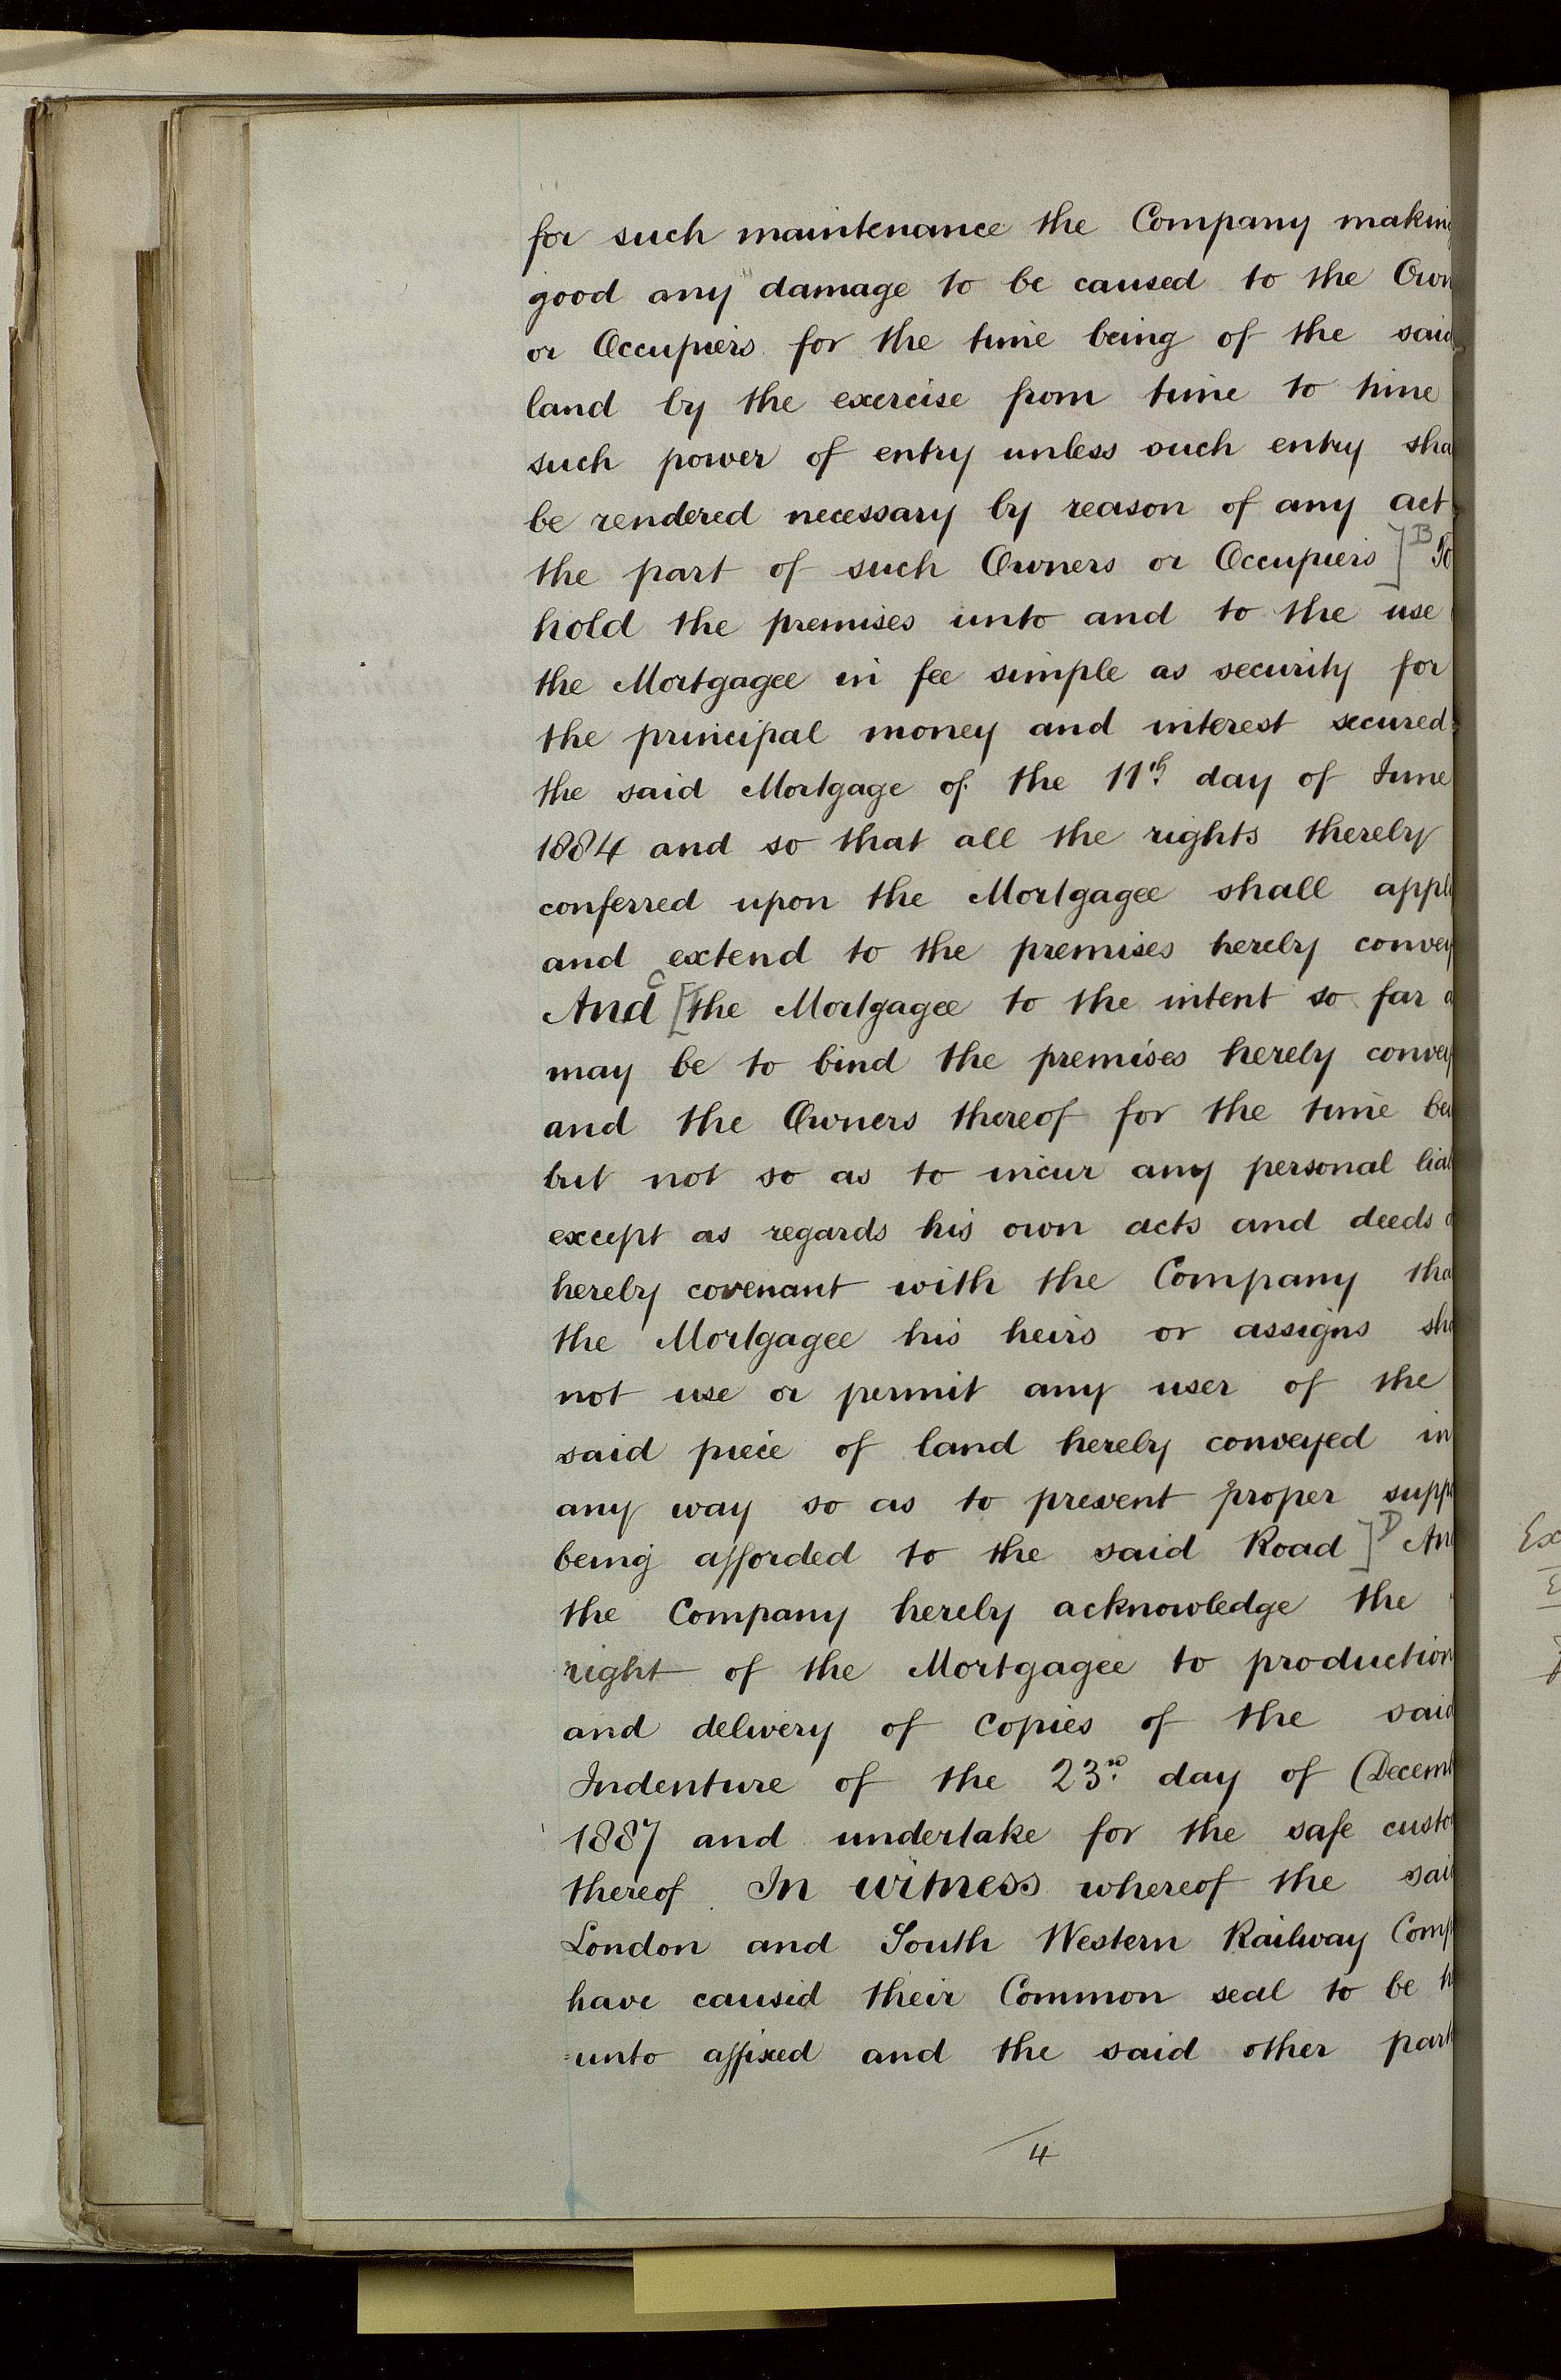 for such maintenance the Company makin
good any damage to be caused to the Own
or Occupiers for the time being of the said
land by the exercise from time to time
such power of entry unless such entry sha
be rendered necessary by reason of any act
the part of such Owners or Occupiers ] B To
hold the premises unto and to the use
the Mortgagee in fee simple as security for
the principal money and interest secured
the said Mortgage of the 11th day of June
1884 and so that all the rights thereby
conferred upon the Mortgagee shall appl
and extend to the premises hereby convey
And C [the Mortgagee to the intent so far a
may be to bind the premises hereby convey
and the Owners thereof for the time bei
but not so as to incur any personal liab
except as regards his own acts and deeds d
hereby covenant with the Company tha
the Mortgagee his heirs or assigns sha
not use or permit any user of the
said piece of land hereby conveyed in
any way so as to prevent proper suppo
being afforded to the said Road ] D And
the Company hereby acknowledge the
right of the Mortgagee to production
and delivery of copies of the said
Indenture of the 23rd day of Decemb
1887 and undertake for the safe custo
thereof In witness whereof the said
London and South Western Railway Comp
have caused their Common seal to be h
=unto affixed and the said other part
4
Ex